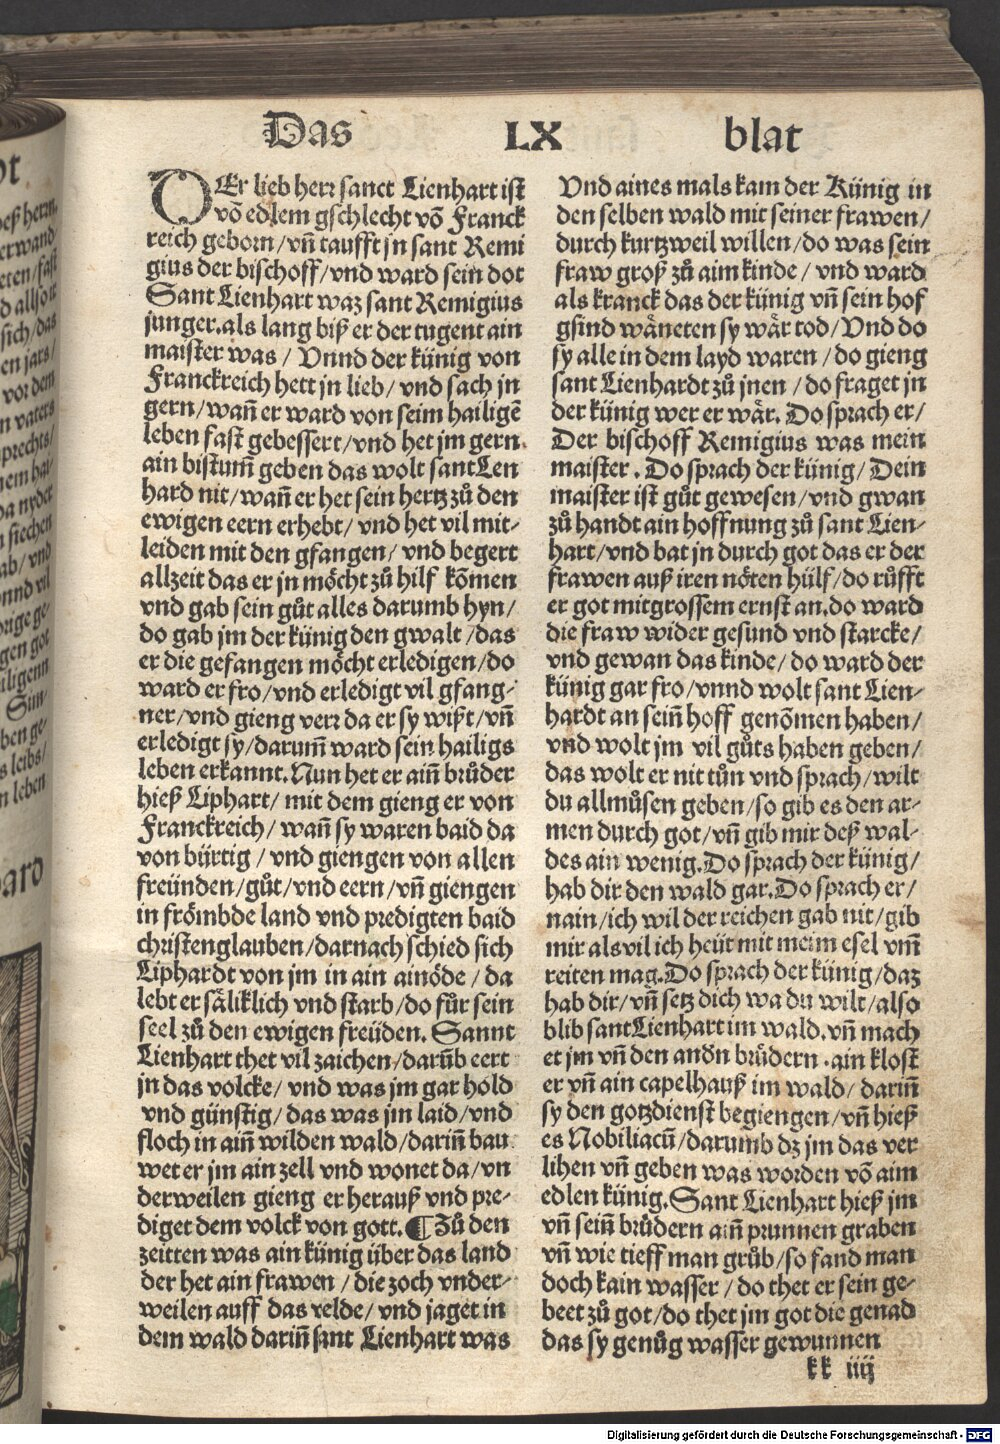 Das LX blat
DEr lieb herr sanct Lienhart ist
võ edlem gschlecht võ Franck
reich geborn/vñ taufft jn sant Remi
gius der bischoff/vnd ward sein dot
Sant Lienhart waz sant Remigius
junger.als lang biß er der tugent ain
maister was/ Vnnd der künig von
Franckreich hett jn lieb/ vnd sach jn
gern/wañ er ward von seim hailigẽ
leben fast gebessert/vnd het jm gern
ain bistum̃ geben das wolt sant Len
hard nit/wañ er het sein hertz zů den
ewigen eern erhebt/ vnd het vil mit-
leiden mit den gfangen/ vnd begert
allzeit das er jn möcht zů hilf kõmen
vnd gab sein gůt alles darumb hyn/
do gab jm der künig den gwalt /das
er die gefangen möcht erledigen/do
ward er fro/vnd erledigt vil gfang-
ner/vnd gieng verr da er sy wißt/vñ
erledigt sy/darum̃ ward sein hailigs
leben erkannt.Nun het er aiñ brůder
hieß Liphart/ mit dem gieng er von
Franckreich/ wañ sy waren baid da
von bürtig / vnd giengen von allen
freünden/gůt/vnd eern/vñ giengen
in frömbde land vnd predigten baid
christenglauben/darnach schied sich
Liphardt von jm in ain ainöde / da
lebt er säliklich vnd starb/do für sein
seel zů den ewigen freüden. Sannt
Lienhart thet vil zaichen/darũb eert
jn das volcke/ vnd was jm gar hold
vnd günstig/das was jm laid/vnd
floch in aiñ wilden wald/dariñ bau
wet er jm ain zell vnd wonet da/vn
derweilen gieng er herauß vnd pre-
diget dem volck von gott.¶Zů den
zeitten was ain künig über das land
der het ain frawen / die zoch vnder-
weilen auff das velde/ vnd jaget in
dem wald dariñ sant Lienhart was
Vnd aines mals kam der Künig in
den selben wald mit seiner frawen/
durch kurtzweil willen/do was sein
fraw groß zů aim kinde / vnd ward
als kranck das der künig vñ sein hof
gsind wäneten sy wär tod/Vnd do
sy alle in dem layd waren /do gieng
sant Lienhardt zů jnen / do fraget jn
der künig wer er wär. Do sprach er/
Der bischoff Remigius was mein
maister . Do sprach der künig/ Dein
maister ist gůt gewesen/vnd gwan
zů handt ain hoffnung zů sant Lien-
hart/vnd bat jn durch got das er der
frawen auß iren nöten hülf/do růfft
er got mit grossem ernst an.do ward
die fraw wider gesund vnd starcke/
vnd gewan das kinde/do ward der
künig gar fro/vnnd wolt sant Lien-
hardt an seiñ hoff genõmen haben/
vnd wolt jm vil gůts haben geben/
das wolt er nit tůn vnd sprach/wilt
du allmůsen geben/so gib es den ar-
men durch got/vñ gib mir deß wal-
des ain wenig.Do sprach der künig/
hab dir den wald gar.Do sprach er/
nain/ich wil der reichen gab nit/gib
mir als vil ich heüt mit meim esel vm̃
reiten mag.Do sprach der künig/daz
hab dir/vñ setz dich wa du wilt/also
blib sant Lienhart im wald.vñ mach
et jm vñ den andn brüdern .ain klost
er vñ ain capelhauß im wald/ dariñ
sy den gotzdienst begiengen/vñ hieß
es Nobiliacũ/darumb dz jm das ver
lihen vñ geben was worden võ aim
edlen künig.Sant Lienhart hieß jm
vñ seiñ brüdern aiñ prunnen graben
vñ wie tieff man grůb/so fand man
doch kain wasser / do thet er sein ge-
beet zů got/do thet jm got die genad
das sy genůg wasser gewunnen
kk iiij
Digitalisierung gefördert durch die Deutsche Forschungsgemeinschaft - DFG